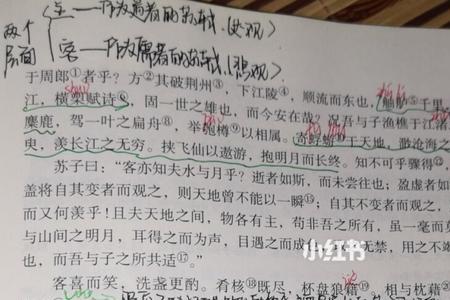 两个
层面
主——作为
的
(达观)
客——作为
者的
(悲观)
于周郎①者乎?方②其破荆州③,下江陵④,顺流而东也,舳舻⑤千里
江,横槊赋诗⑥,固一世之雄也,而今安在哉?况吾与子渔樵于江渚
麋鹿,驾一叶之扁舟⑧,举匏樽⑨以相属。寄蜉蝣⑩于天地,渺沧海之
臾,羡长江之无穷。挟飞仙以遨游,抱明月而长终。知不可乎骤得⑫,
苏子曰:“客亦知夫水与月乎?逝者如斯,而未尝往也;盈虚者如
盖将自其变者而观之,则天地曾不能以一瞬⑮;自其不变者而观之,
而又何羡乎!且夫天地之间,物各有主,苟非吾之所有,虽一毫而莫
与山间之明月,耳得之而为声,目遇之而成色,取之无禁,用之不竭
也,而吾与子之所共适⑰。”
小红书
客喜而笑,洗盏更酌。肴核⑱既尽,杯盘狼籍⑲。相与枕藉